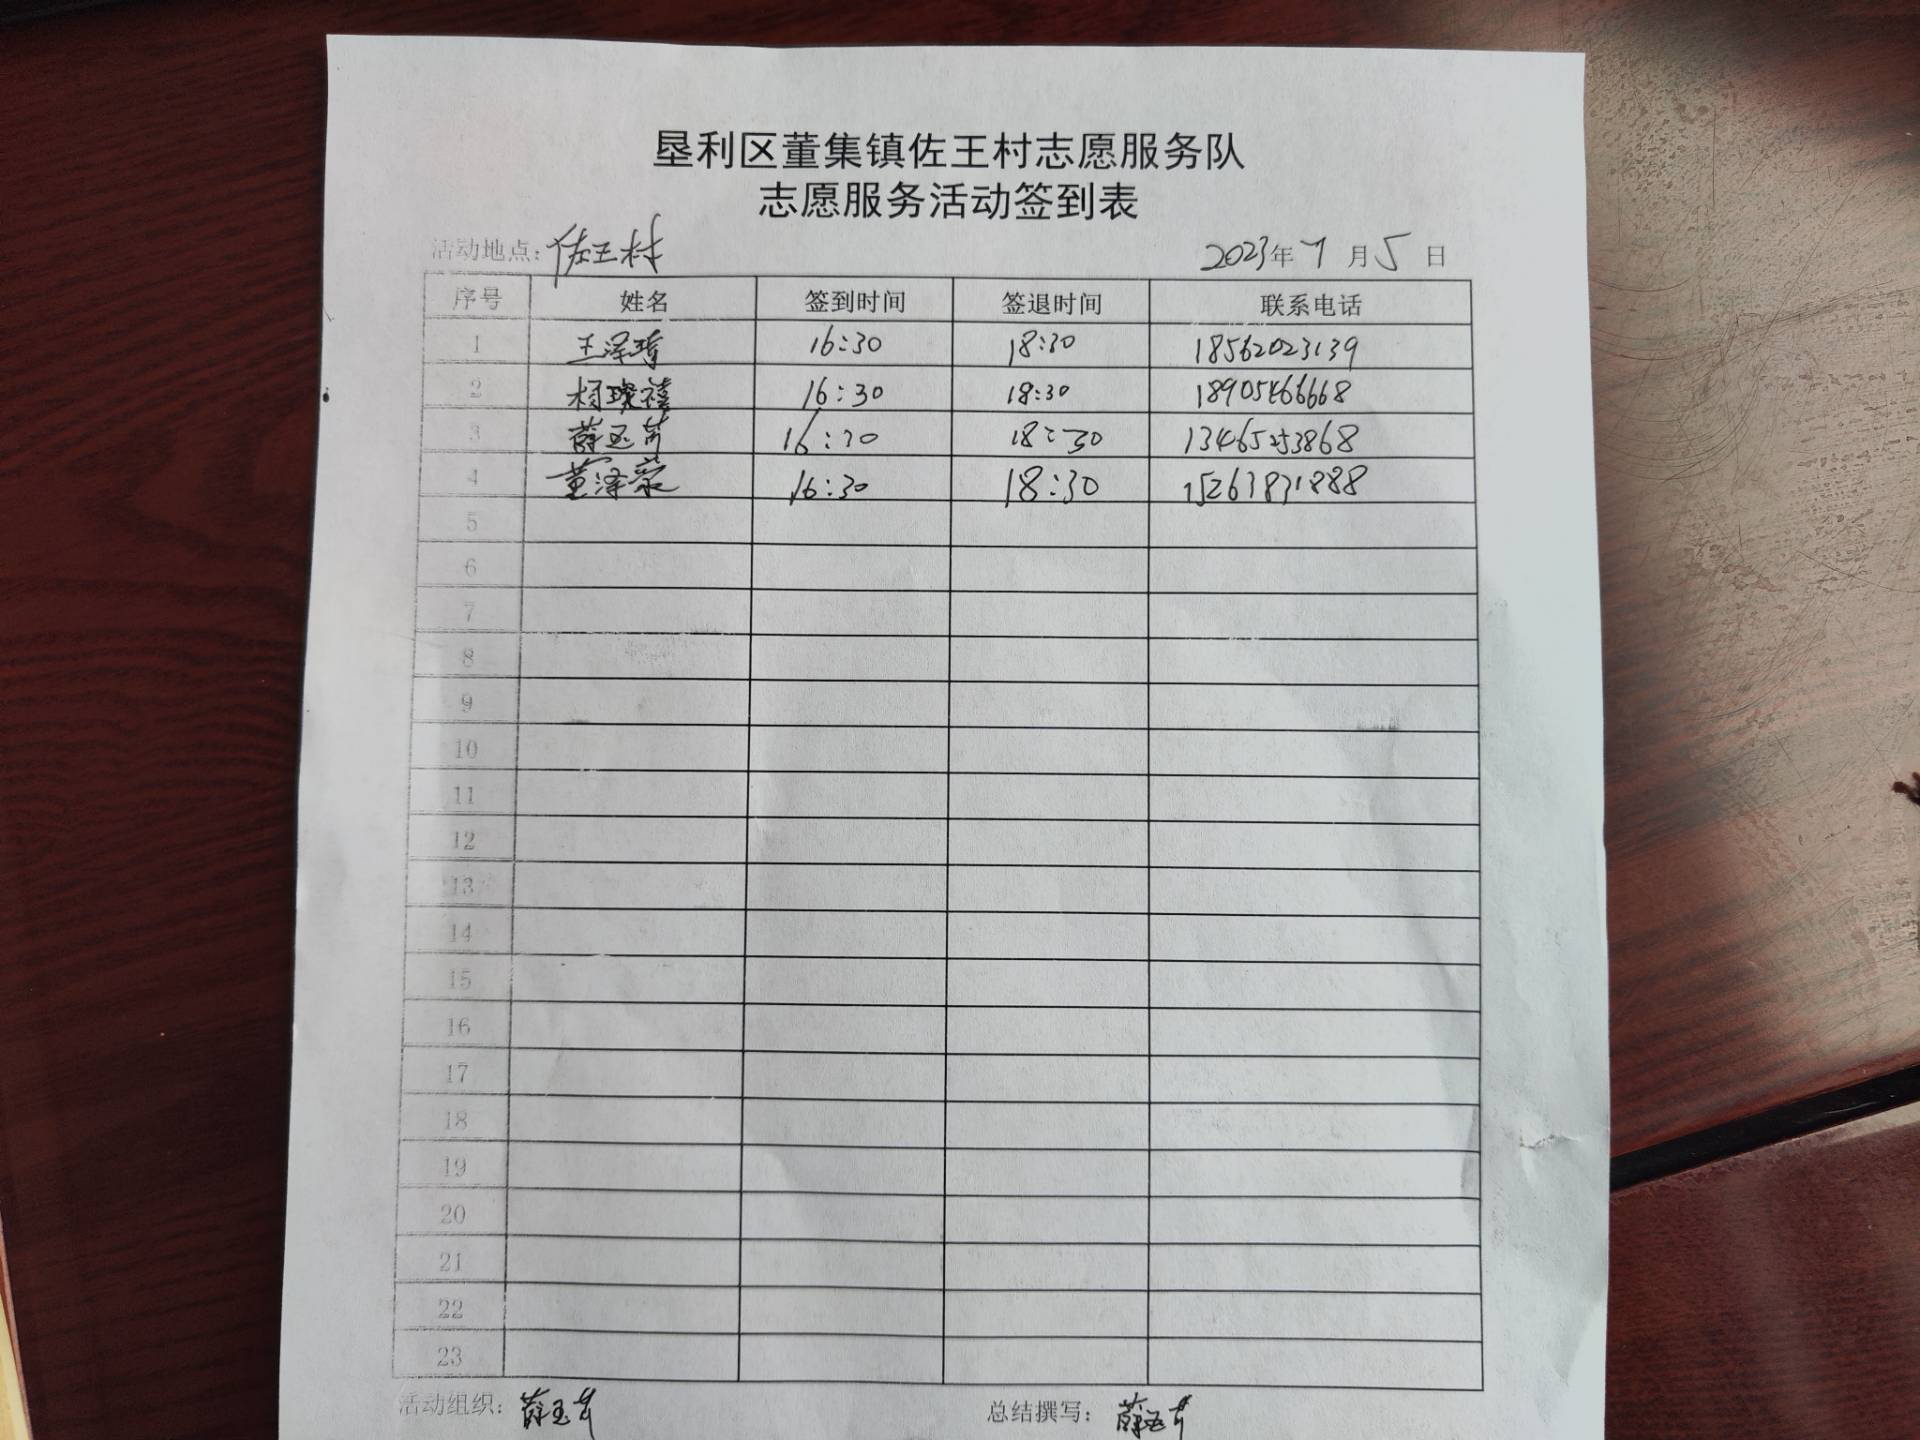 垦利区董集镇佐王村志愿服务队
志愿服务活动签到表
活动地点：佐王村 2023年7月5日
序号 姓名 签到时间 签退时间 联系电话
1 16:30 18:30 18562023139
2 16:30 18:30 18905466668
3 薛玉芹 16:30 18:30 13465253868
4 16:30 18:30 15263831888
5
6
7
8
9
10
11
12
13
14
15
16
17
18
19
20
21
22
23
活动组织：薛玉芹 总结撰写：薛玉芹